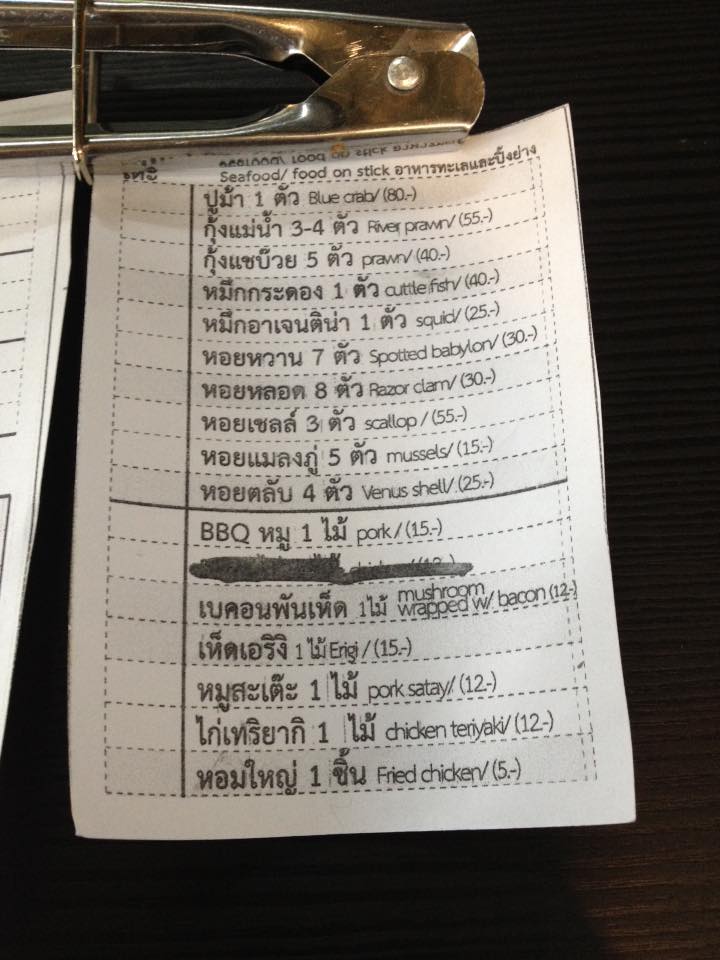 Seafood/ food on stick อาหารทะเลและปิ้งย่าง
ปูม้า 1 ตัว Blue crab/ (80.-)
กุ้งแม่น้ำ 3-4 ตัว River prawn/ (55.-)
กุ้งแชบ๊วย 5 ตัว prawn/ (40.-)
หมึกกระดอง 1 ตัว cuttle fish/ (40.-)
หมึกอาเจนติน่า 1 ตัว squid/ (25.-)
หอยหวาน 7 ตัว Spotted babylon/ (30.-)
หอยหลอด 8 ตัว Razor clam/ (30.-)
หอยเชลล์ 3 ตัว scallop / (55.-)
หอยแมลงภู่ 5 ตัว mussels/ (15.-)
หอยตลับ 4 ตัว Venus shell/ (25.-)
BBQ หมู 1 ไม้ pork / (15.-)
เบคอนพันเห็ด 1ไม้ mushroom wrapped w/ bacon (12.-)
เห็ดเอริงิ 1 ไม้ Erigi / (15.-)
หมูสะเต๊ะ 1 ไม้ pork satay/ (12.-)
ไก่เทริยากิ 1 ไม้ chicken teriyaki/ (12.-)
หอมใหญ่ 1 ชิ้น Fried chicken/ (5.-)